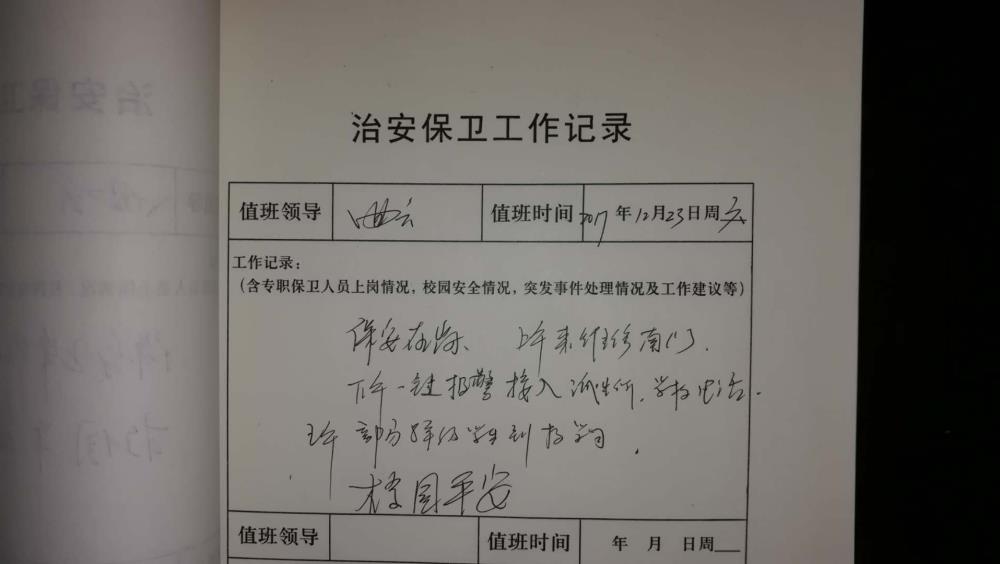 治安保卫工作记录
值班领导 值班时间 2017年12月23日周六
工作记录：
（含专职保卫人员上岗情况，校园安全情况，突发事件处理情况及工作建议等）
保安在岗、上午来维修南门.
下午一键报警接入派出所.学校电话.
上午部分 学生到校
校园平安
值班领导 值班时间 年 月 日周
治安保卫